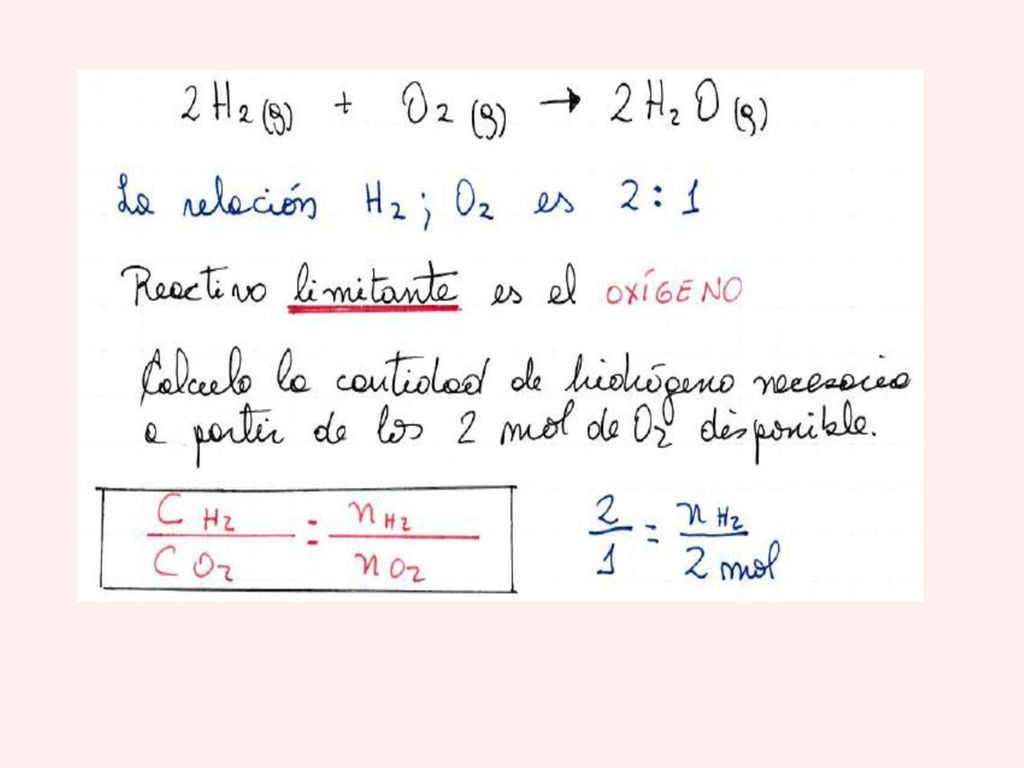 2H₂(g) + O₂(g) → 2H₂O(g)
La relación H₂; O₂ es 2:1
Reactivo limitante es el OXÍGENO
Calculo la cantidad de hidrógeno necesario
a partir de los 2 mol de O₂ disponible.
C H₂ / C O₂ = n H₂ / n O₂
2/1 = n H₂ / 2 mol